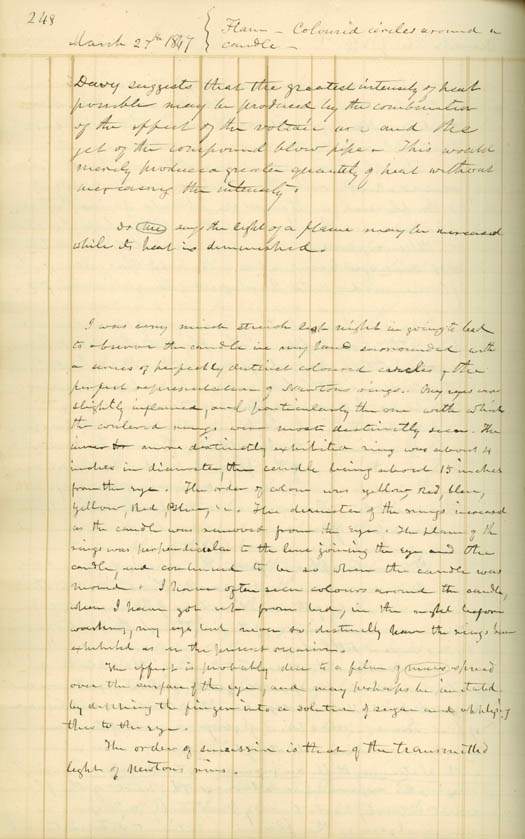 248
March 27th 1847 { Flame - Coloured circles around a
candle -
Davy suggests that the greatest intensity of heat
possible may be produced by the combination
of the effect of the voltaic arc and the
jet of the compound blow pipe - This would
merely produce a greater quantity of heat without
increasing the intensity.
Do says the light of a flame may be increased
while its heat is diminished.
I was very much struck last night in going to bed
to observe the candle in my hand surrounded with
a series of perfectly distinct coloured circles, the
perfect representation of Newtons rings. My eyes were
slightly inflamed, and particularly the one with which
the coulered rings were most distinctly seen. The
inner more distinctly exhibited ring was about 4
inches in diameter, the candle being about 15 inches
from the eye. The order of colour was yellow, red, blue,
yellow, Red, Blue, &c. The diameter of the rings increased
as the candle was removed from the eye. The plane of the
rings was perpendicular to the line joining the eye and the
candle, and continued to be so when the candle was
moved. I have often seen colours around the candle,
when I have got up from bed, in the night before
washing, my eye but never so distinctly have the rings been
exhibited as on the present occasion.
The effect is probably due to a film of mucus spread
over the surface of the eye, and may perhaps be imitated
by dipping the finger into a solution of sugar and applying
this to the eye.
The order of succession is that of the transmitted
light of Newtons rings.